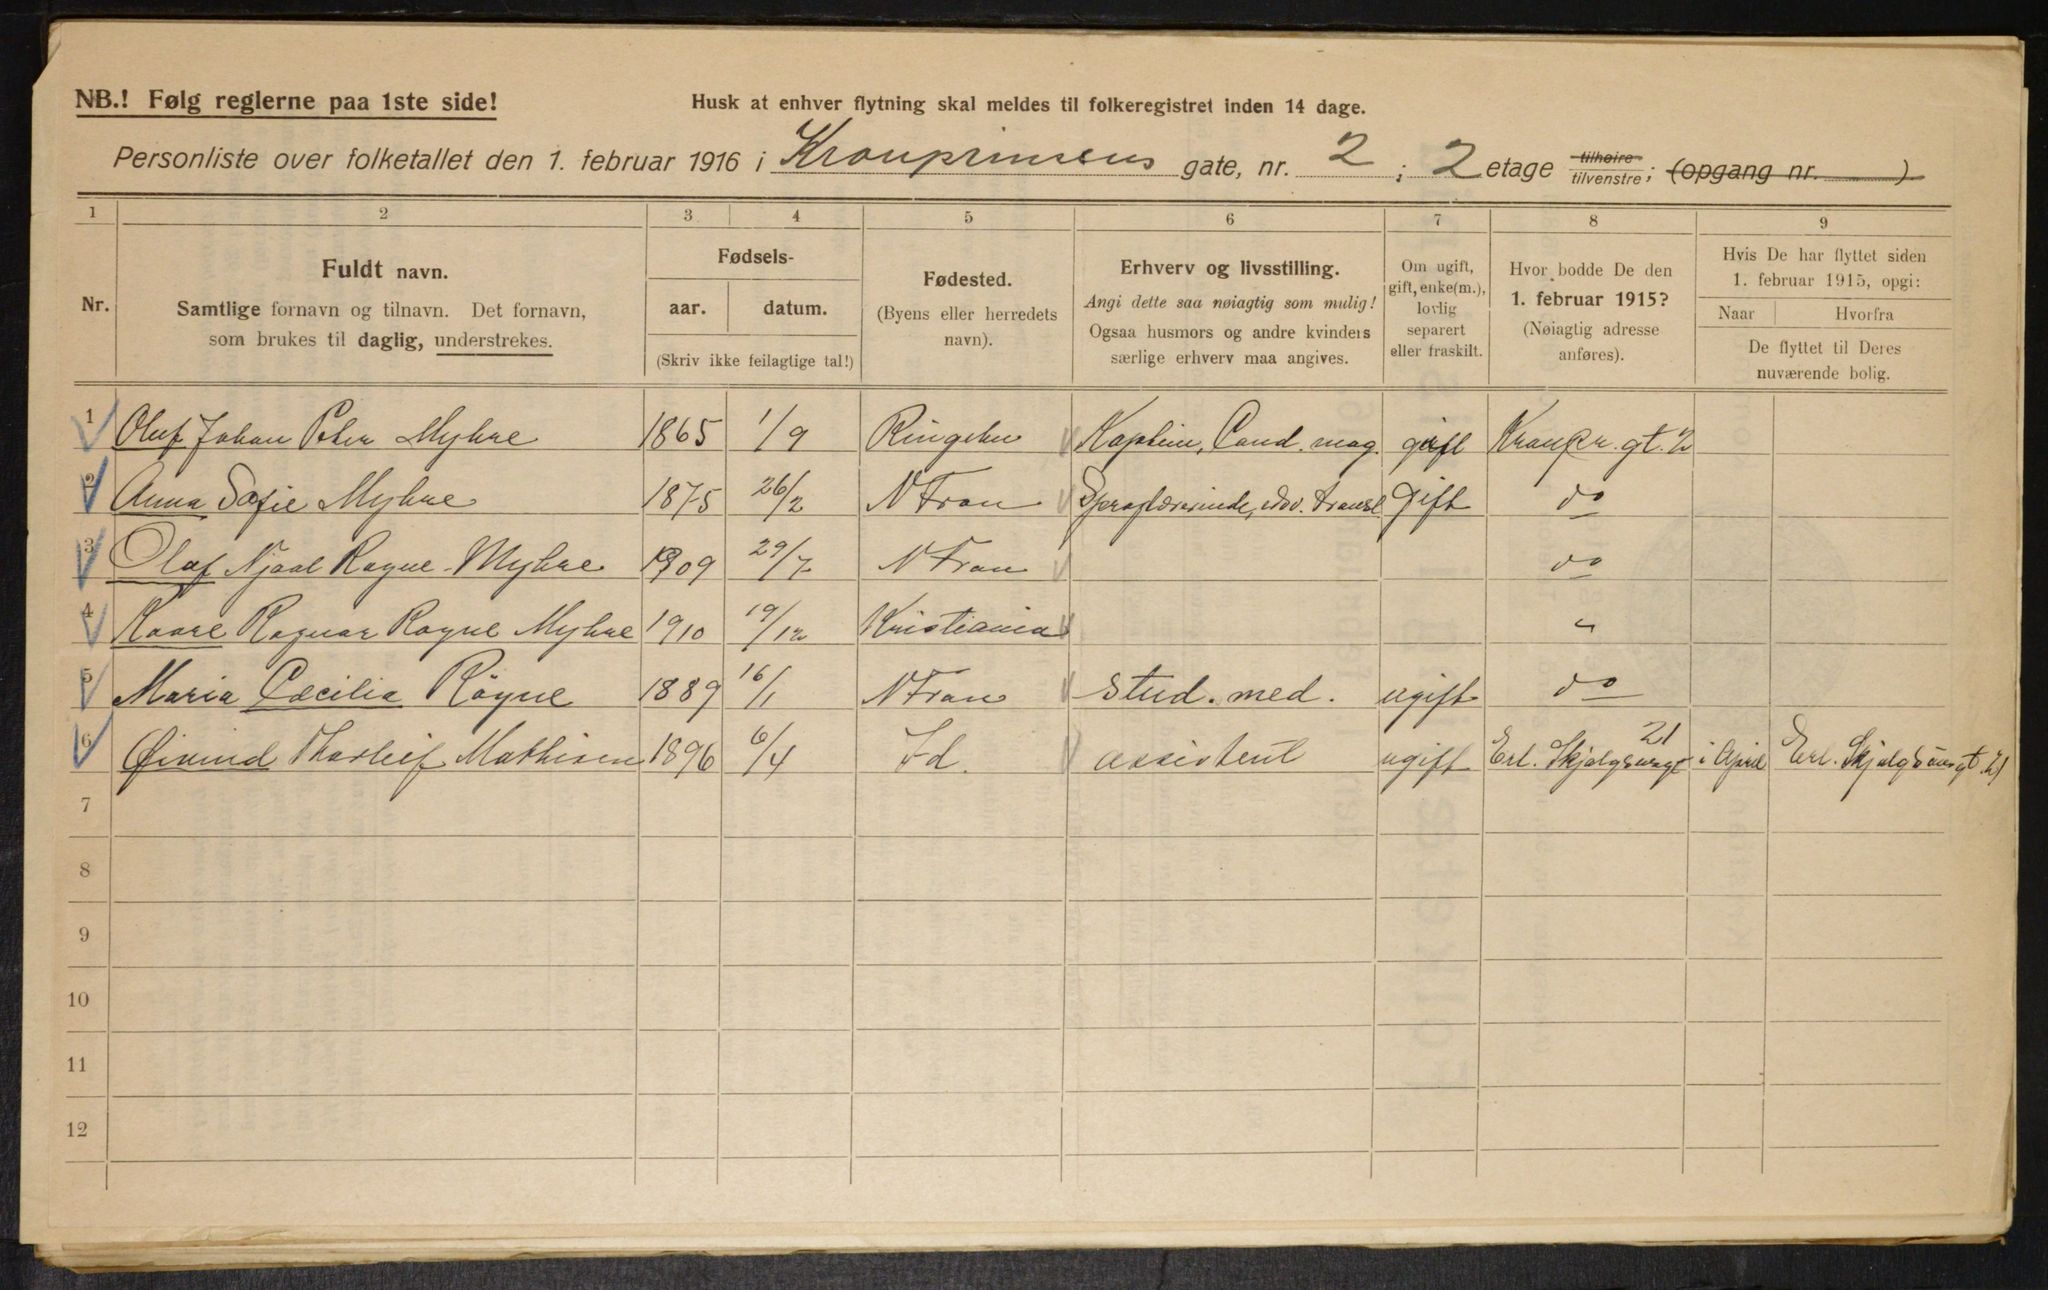 NB.! Følg reglerne paa 1ste side!
Husk at enhver flytning skal meldes til folkeregistret inden 14 dage.
Personliste over folketallet den 1. februar 1916 i Kronprinsens gate, nr. 2 ; 2 etage tilhøire tilvenstre; (opgang nr. )
1 2 3 4 5 6 7 8 9
Nr.
Fuldt navn.
Samtlige fornavn og tilnavn. Det fornavn,
som brukes til daglig, understrekes.
Fødsels-
aar. datum.
(Skriv ikke feilagtige tal!)
Fødested.
(Byens eller herredets
navn).
Erhverv og livsstilling.
Angi dette saa nøiagtig som mulig!
Ogsaa husmors og andre kvinders
særlige erhverv maa angives.
Om ugift,
gift, enke(m.),
lovlig
separert
eller fraskilt.
Hvor bodde De den
1. februar 1915?
(Nøiagtig adresse
anføres).
Hvis De har flyttet siden
1. februar 1915, opgi:
Naar Hvorfra
De flyttet til Deres
nuværende bolig.
1 Oluf Johan Peter Myhre 1865 1/9 Ringebu Kaptein, Cand. mag. gift Kronpr. gt. 2
2 Anna Sofie Myhre 1875 26/2 N Fron Sproglærerinde, edsv. transl gift do
3 Olaf Njaal Røgne Myhre 1909 29/7 N Fron do
4 Kaare Ragnar Røgne Myhre 1910 19/12 Kristiania "
5 Maria Cæcilia Røgne 1889 16/1 N Fron stud. med. ugift do
6 Øivind Thorleif Mathisen 1896 6/4 Id. assistent ugift Erl. Skjalgsønsgt 21 i April Erl. Skjalgsønsgt. 21
7
8
9
10
11
12